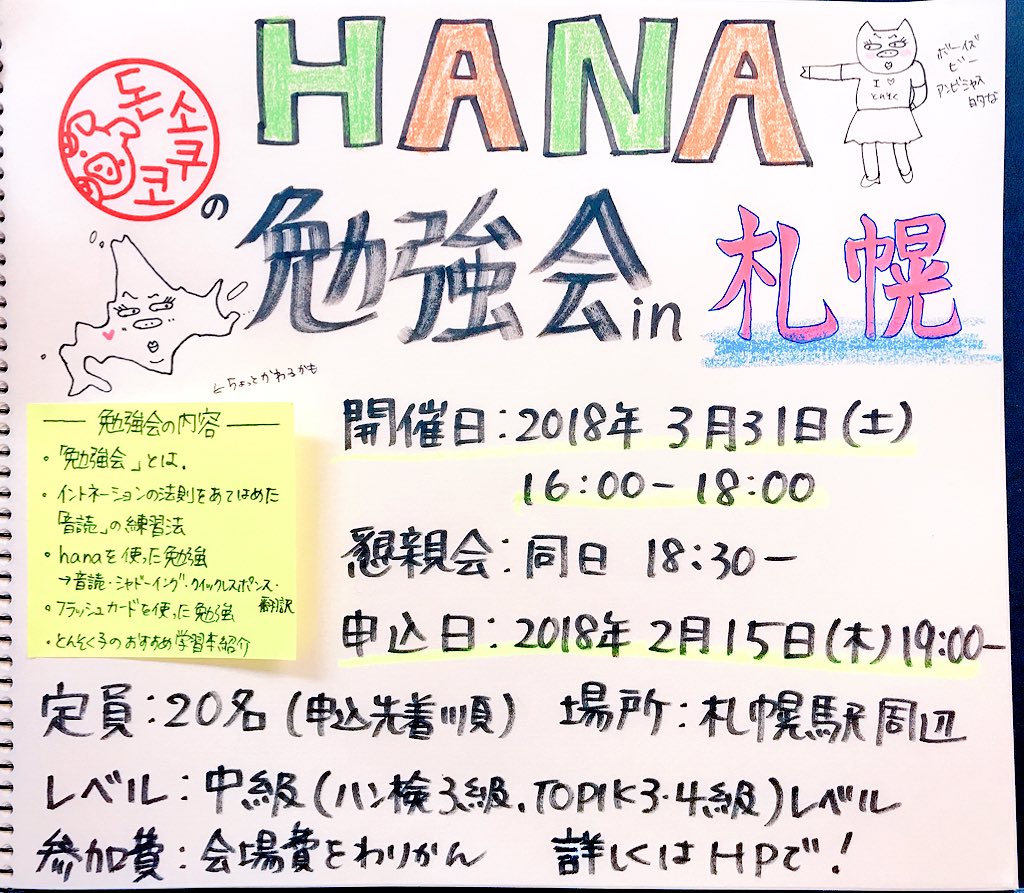 HANA
돈소쿠코
ボーイズ
ビー
アンビシャス
的な
I ♡
とんそく
の
勉強会 in 札幌
←ちょっとかわるかも
勉強会の内容
・「勉強会」とは、
・イントネーションの法則をあてはめた
「音読」の練習法
・hanaを使った勉強
→音読・シャドーイング・クイックレスポンス・
翻訳
・フラッシュカードを使った勉強
・とんそく子のおすすめ学習本紹介
開催日:2018年 3月31日(土)
16:00-18:00
懇親会:同日 18:30-
申込日:2018年 2月15日(木)19:00-
定員:20名(申込先着順) 場所:札幌駅周辺
レベル:中級(ハン検3級、TOPIK3・4級)レベル
参加費:会場費をわりかん 詳しくはHPで!